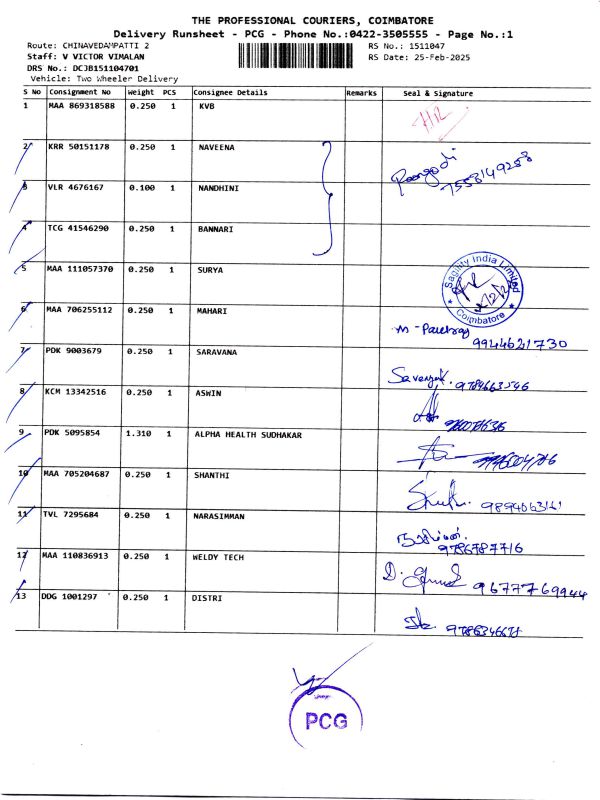 THE PROFESSIONAL COURIERS, COIMBATORE
Delivery Runsheet - PCG - Phone No.:0422-3505555 - Page No.:1
Route: CHINAVEDAMPATTI 2 RS No.: 1511047
Staff: V VICTOR VIMALAN RS Date: 25-Feb-2025
DRS No.: DCJB151104701
Vehicle: Two Wheeler Delivery
S No Consignment No Weight PCS Consignee Details Remarks Seal & Signature
1 MAA 869318588 0.250 1 KVB
2 KRR 50151178 0.250 1 NAVEENA
7558149258
3 VLR 4676167 0.100 1 NANDHINI
4 TCG 41546290 0.250 1 BANNARI
5 MAA 111057370 0.250 1 SURYA
Sagility India Limited
Coimbatore
6 MAA 706255112 0.250 1 MAHARI
9944621730
7 PDK 9003679 0.250 1 SARAVANA
8 KCM 13342516 0.250 1 ASWIN
9 PDK 5095854 1.310 1 ALPHA HEALTH SUDHAKAR
10 MAA 705204687 0.250 1 SHANTHI
11 TVL 7295684 0.250 1 NARASIMMAN
9786787716
12 MAA 110836913 0.250 1 WELDY TECH
9677769944
13 DDG 1001297 0.250 1 DISTRI
PCG